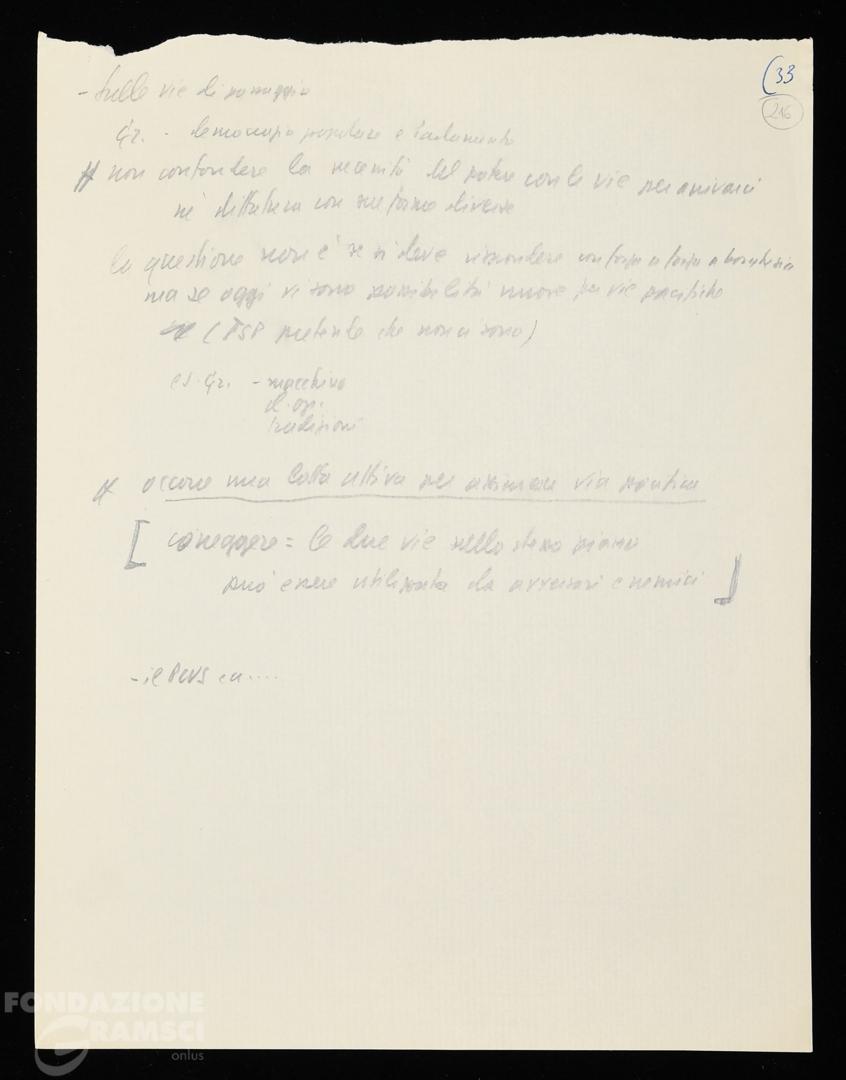 (33
216
- Sulle vie di passaggio
Gr. - democrazia popolare e Parlamento
# non confondere la necessità del potere con le vie per arrivarci
né dittatura con sue forme diverse
la questione non è se si deve rispondere con forza a forza a borghesia
ma se oggi vi sono possibilità nuove per vie pacifiche
(PSP pretende che non ci sono)
es. Gr. -
tradizioni
# occorre una lotta attiva per assicurare via pacifica
[ correggere = le due vie nello stesso piano
può essere utilizzata da avversari e nemici ]
- il PCUS ....
FONDAZIONE
GRAMSCI
onlus